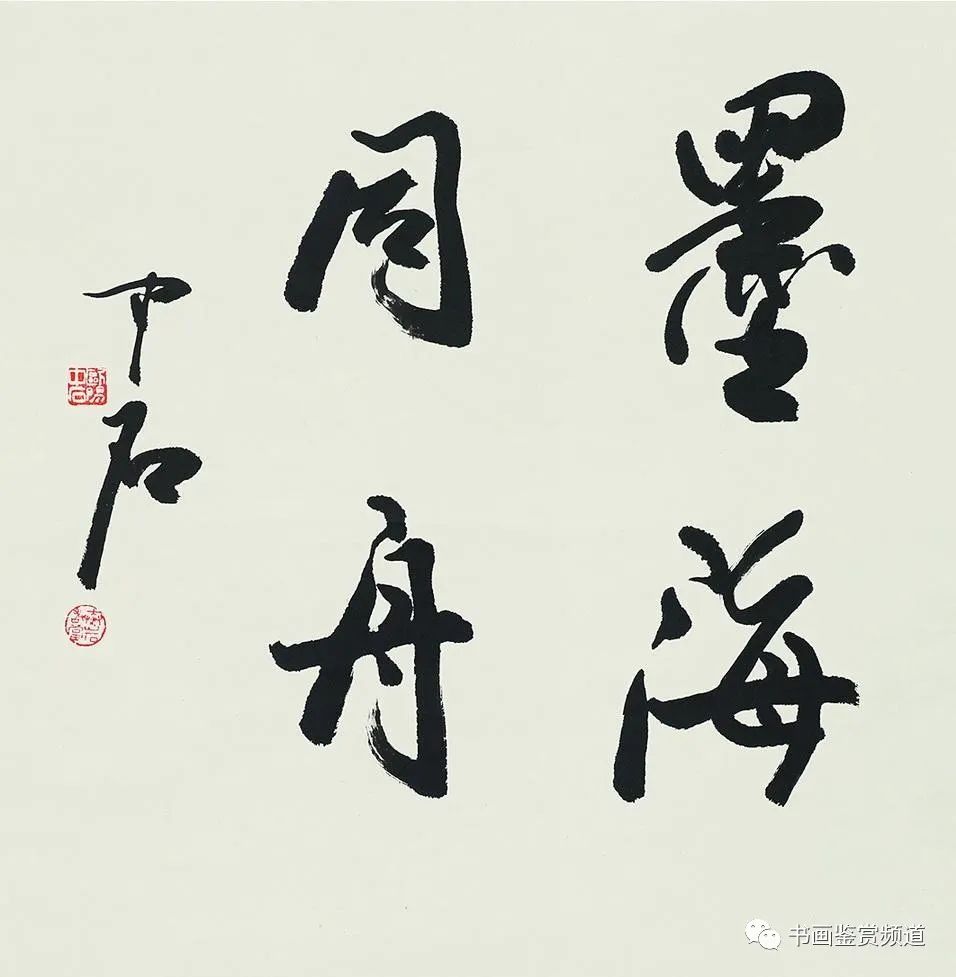 墨海
同舟
中石
书画鉴赏频道